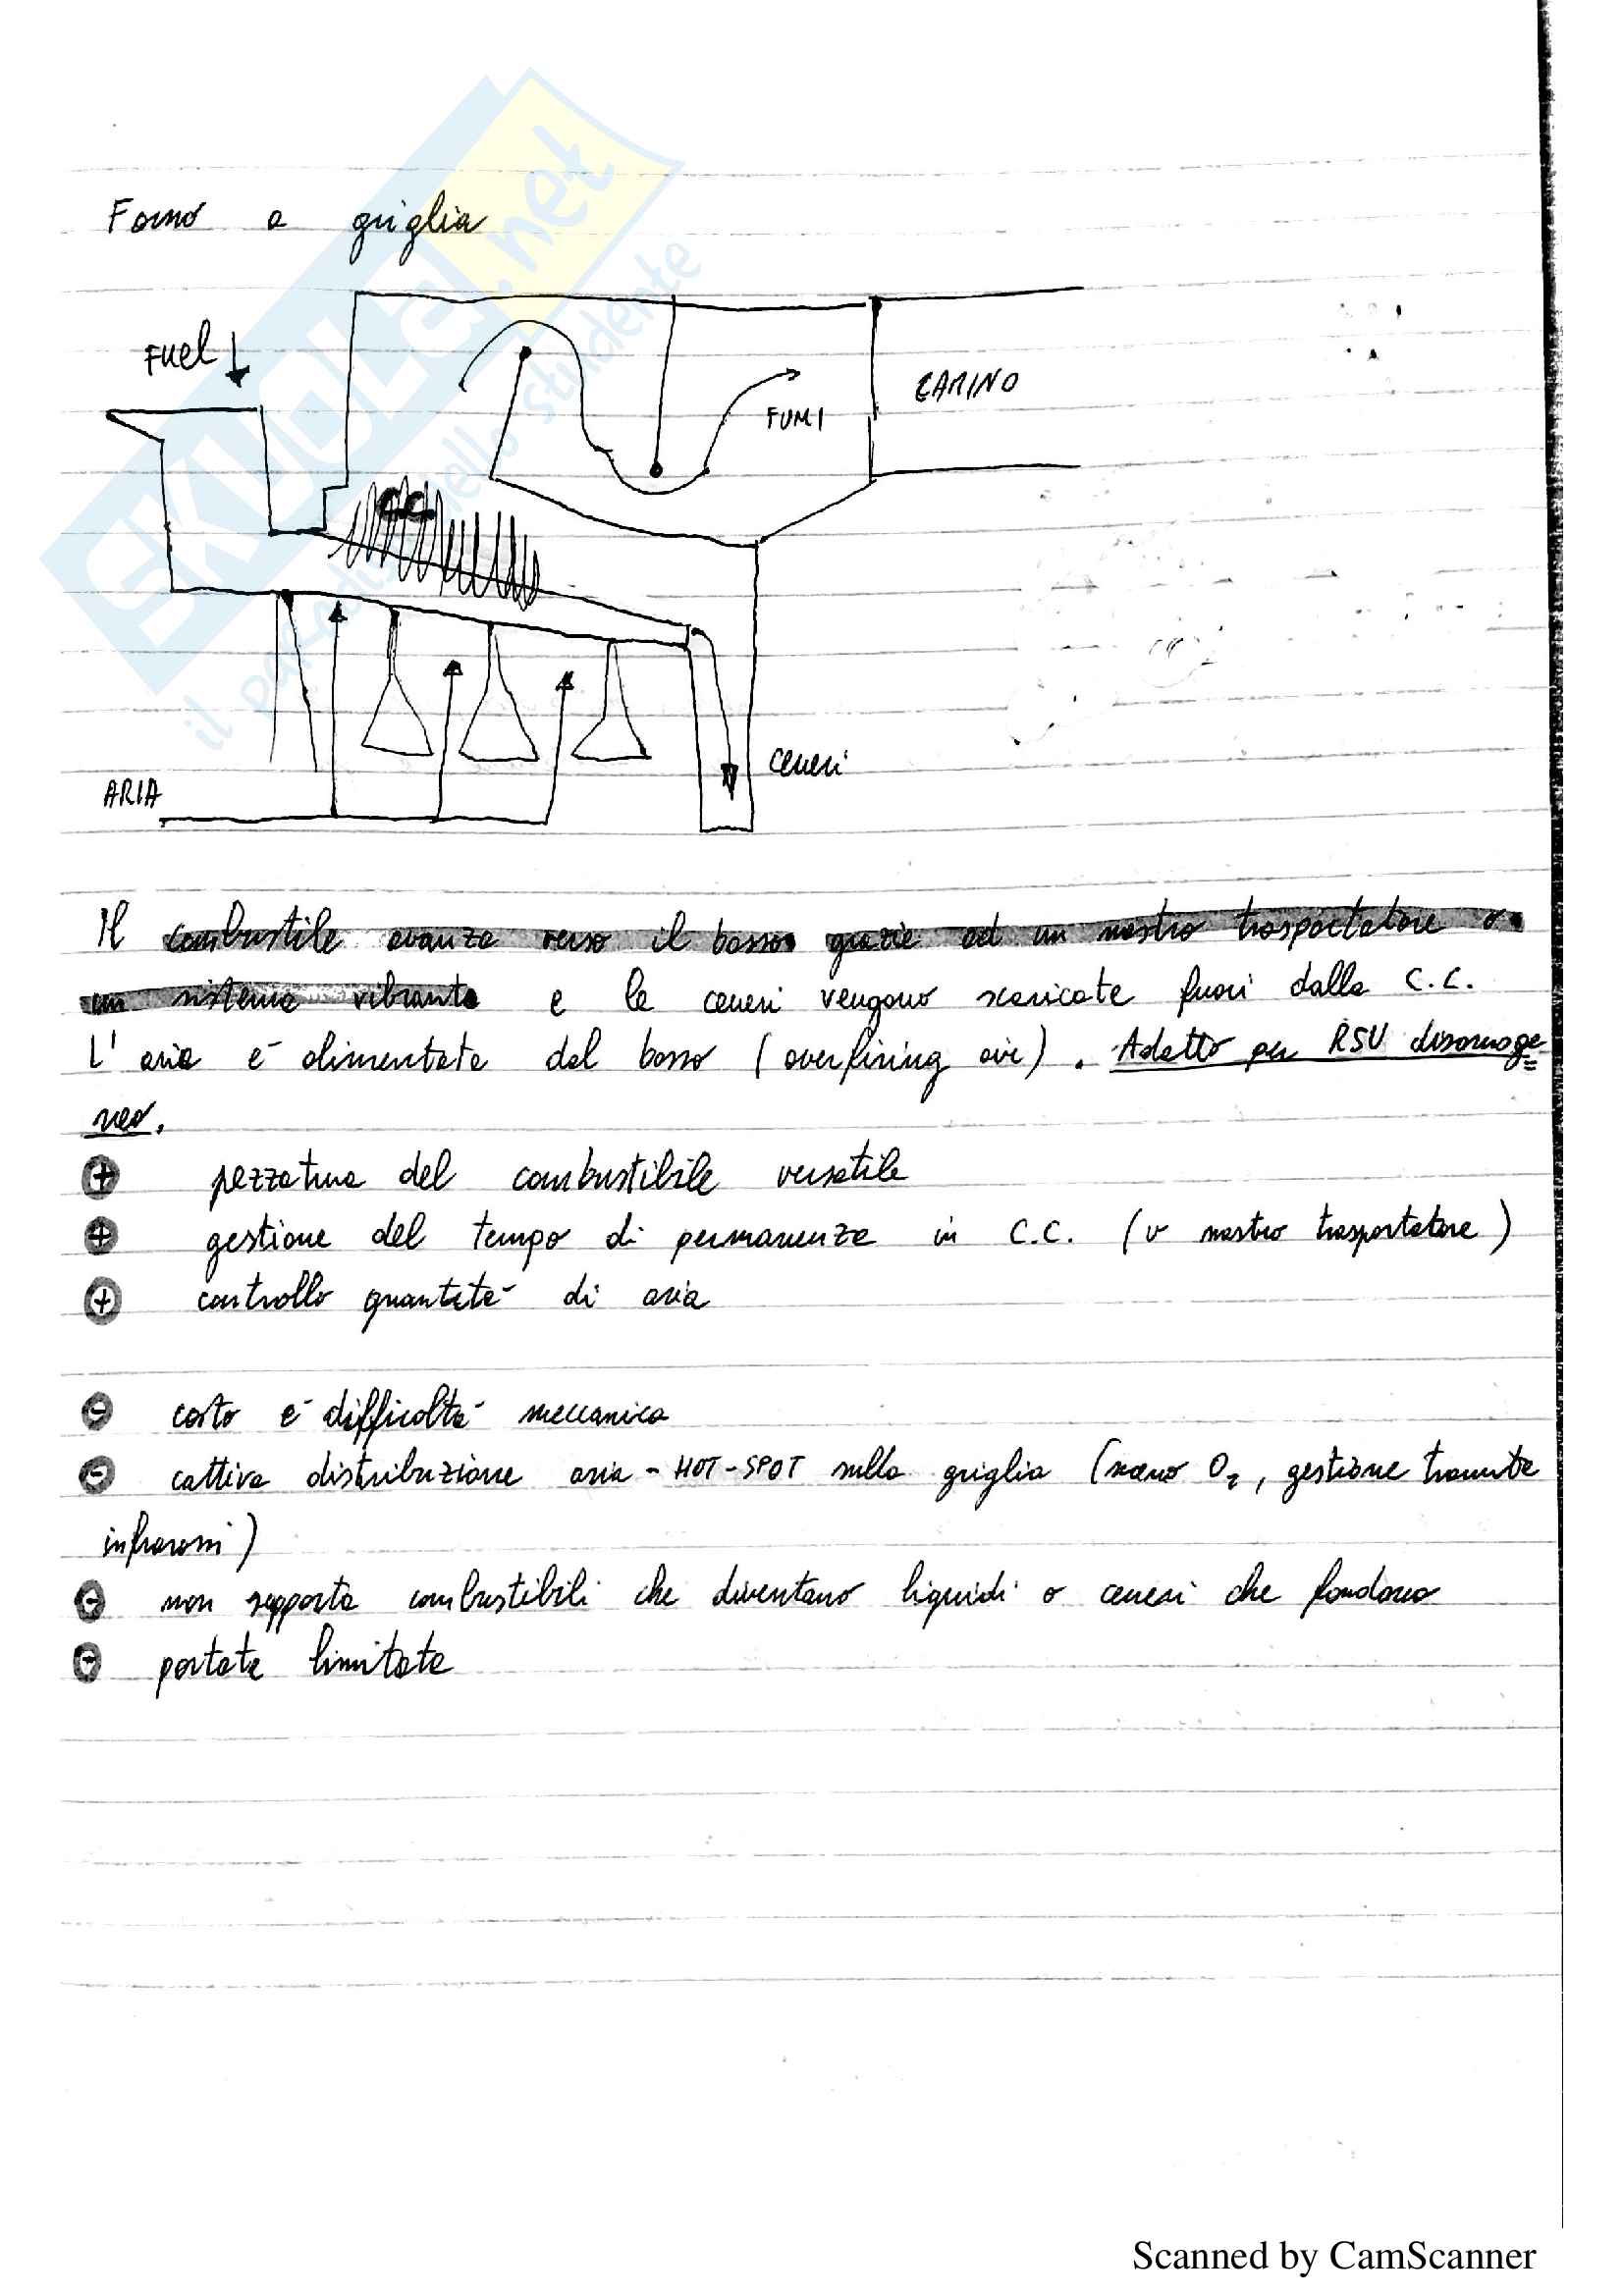 Forno a griglia
FUEL
CAMINO
FUMI
CC
CENERI
ARIA
Il combustile avanza verso il basso grazie ad un nastro trasportatore o
un sistema vibrante e le ceneri vengono scaricate fuori dalla C.C.
L'aria è alimentata dal basso (overfiring air). Adatto per RSU disomoge=
neo.
+ pezzatura del combustibile versatile
+ gestione del tempo di permanenza in C.C. (v nastro trasportatore)
+ controllo quantità di aria
- costo e difficoltà meccanica
- cattiva distribuzione aria - HOT-SPOT sulla griglia (meno O₂, gestione tramite
infrarossi)
- non sopporta combustibili che diventano liquidi o ceneri che fondono
- portata limitata
SKUOLA.net
il paradiso dello studente
Scanned by CamScanner